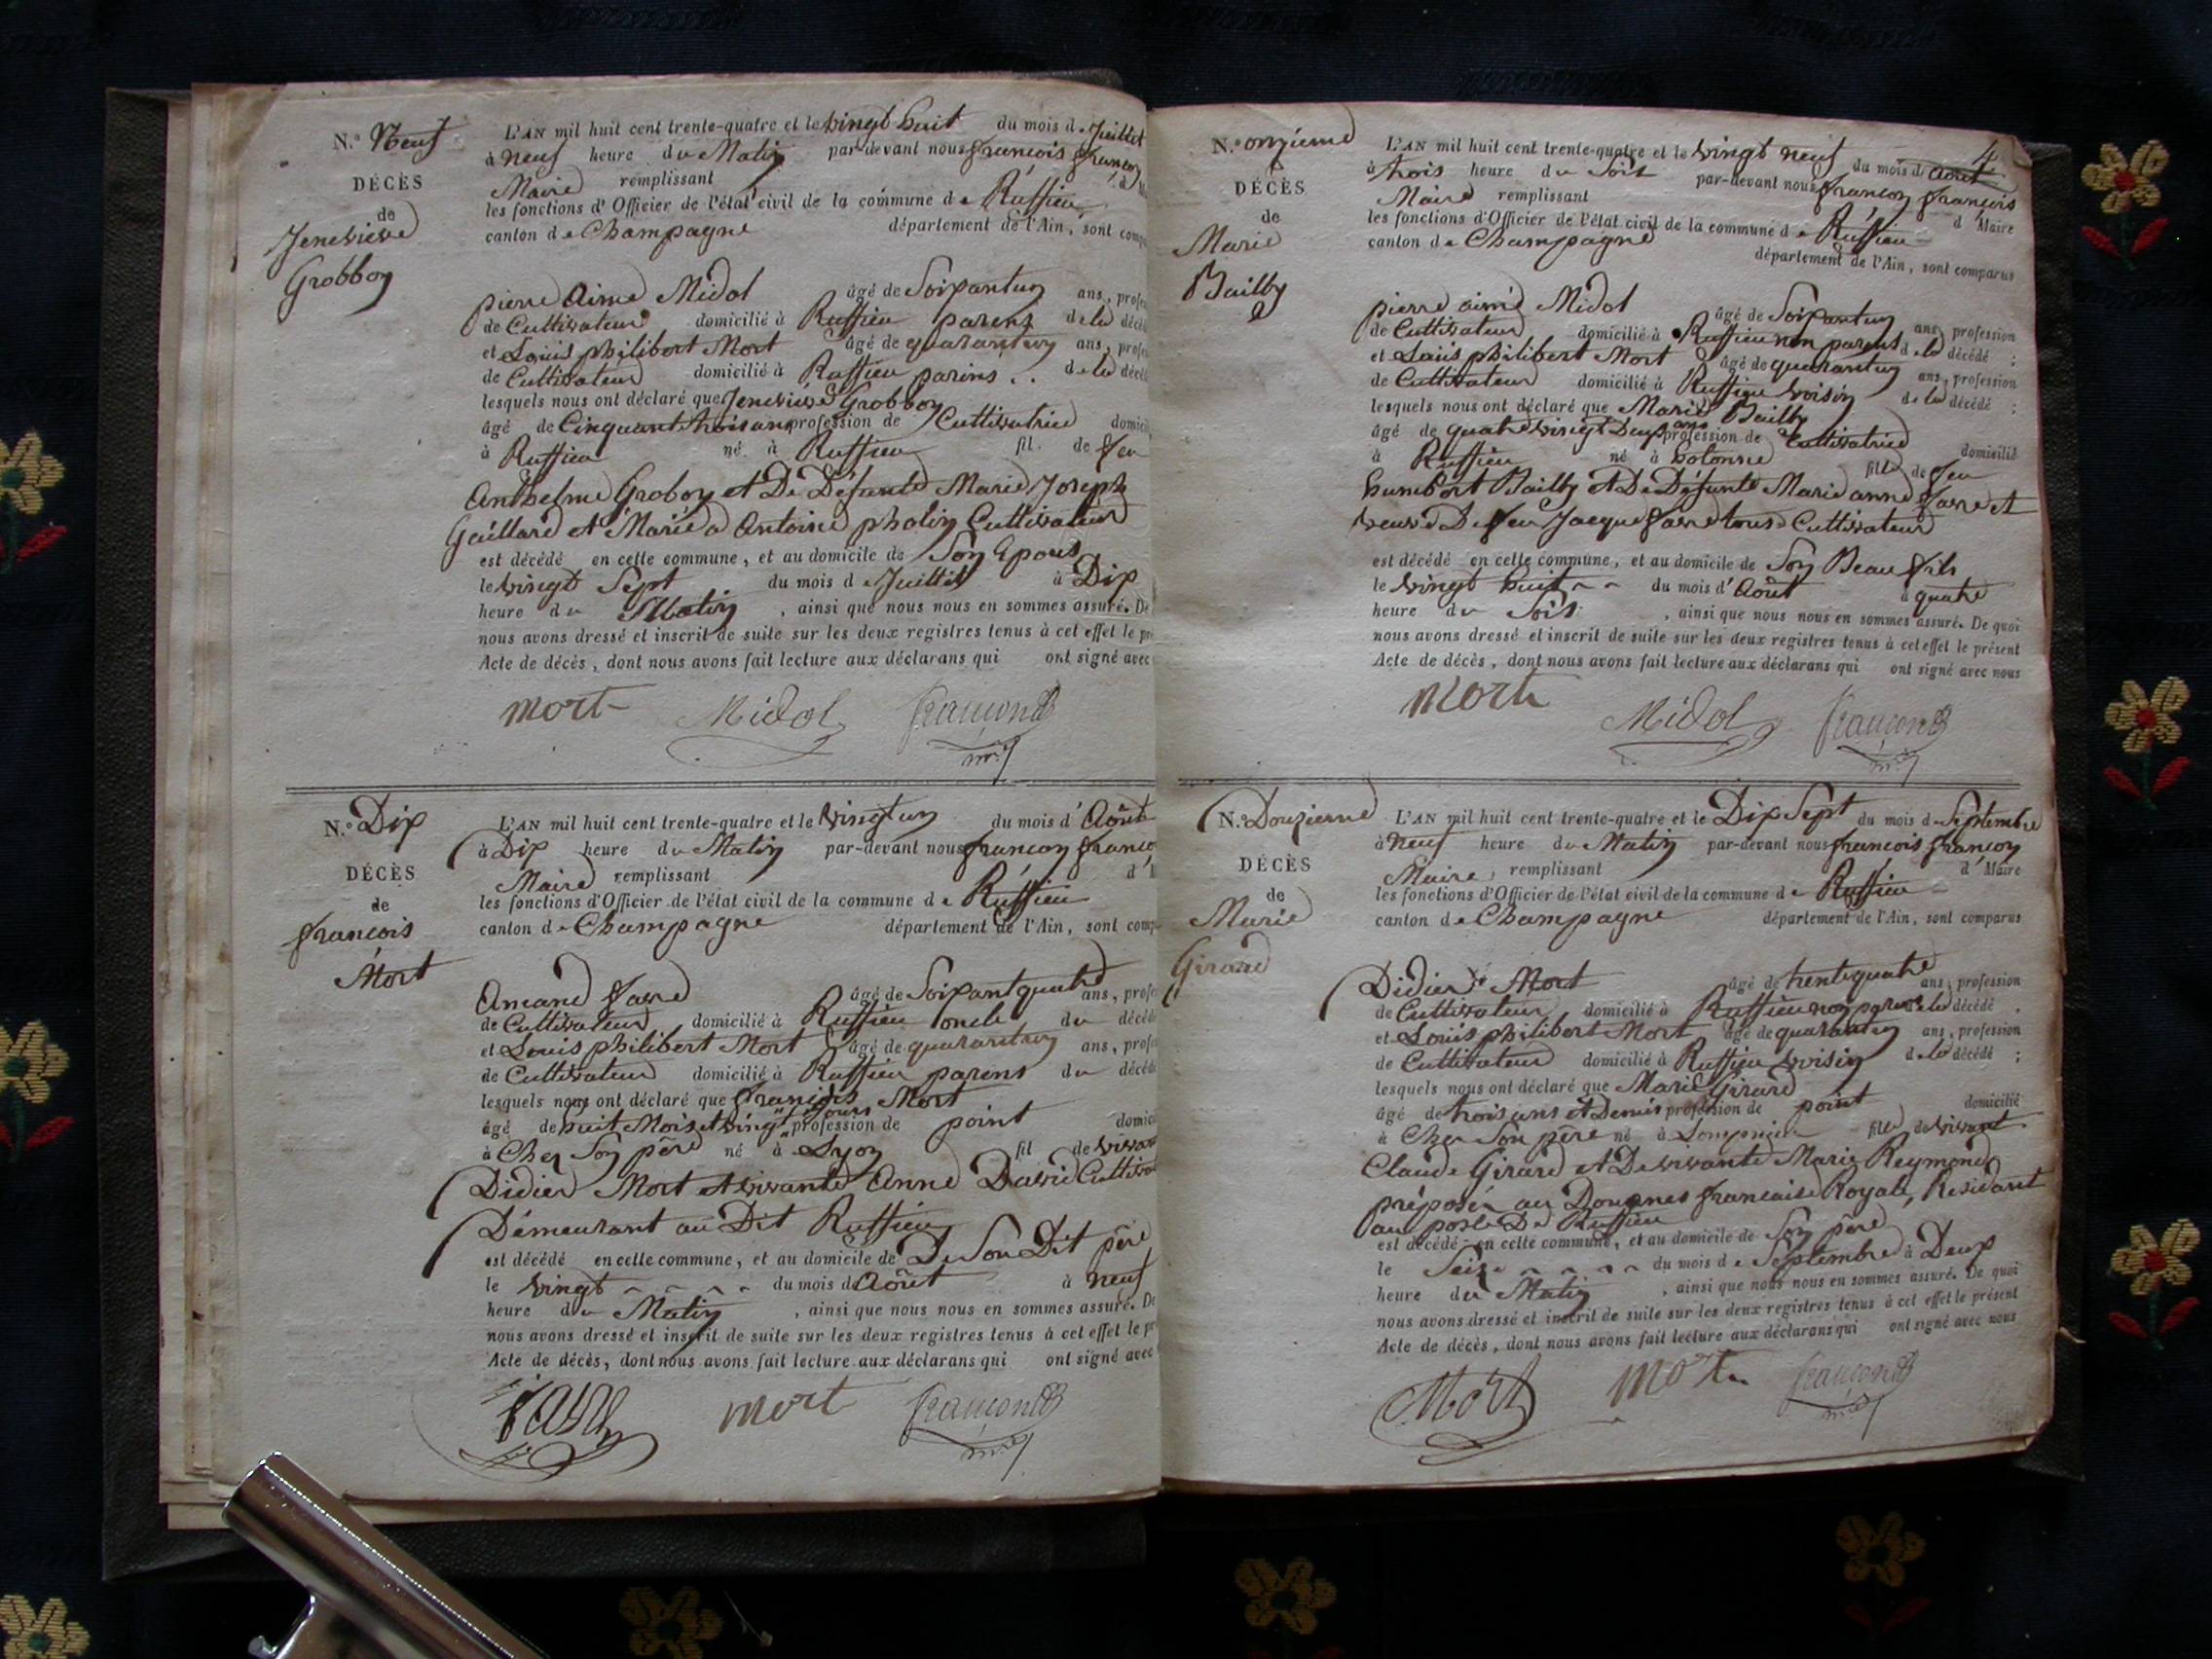 N.° Neuf
DÉCÈS
de
Jenevieve
Grobboz
L'AN mil huit cent trente-quatre et le vingt huit du mois de Juillet
à neuf heure du Matin par-devant nous francois françon
Maire remplissant d
les fonctions d'Officier de l'état civil de la commune de Ruffieu
canton de Champagne département de l'Ain, sont comp
pierre Aimé Midol âgé de Soixantun ans, profe
de Cultivateur domicilié à Ruffieu parens de la décé
et Louis philibert Mort âgé de quarantun ans, profe
de Cultivateur domicilié à Ruffieu parins de la décé
lesquels nous ont déclaré que Jenevieve Grobboz
âgé de Cinquant trois ans profession de Cultivatrice domici
à Ruffieu né à Ruffieu fil de feu
Anthelme Groboz et De Défunte Marie Joseph
Gaillard et Mariée a Antoine phalin Cultivateur
est décédé en cette commune, et au domicile de Son Epous
le vingt Sept du mois de Juillet à Dix
heure du Matin, ainsi que nous nous en sommes assuré. De
nous avons dressé et inscrit de suite sur les deux registres tenus à cet effet le pr
Acte de décès, dont nous avons fait lecture aux déclarans qui ont signé avec
mort Midol françon
m.re
N.° Dix
DÉCÈS
de
francois
Mort
L'AN mil huit cent trente-quatre et le vingt un du mois d'Août
à Dix heure du Matin par-devant nous françon franco
Maire remplissant d'
les fonctions d'Officier de l'état civil de la commune de Ruffieu
canton de Champagne département de l'Ain, sont comp
Amand favre âgé de Soixant quatre ans, profe
de Cultivateur domicilié à Ruffieu oncle du décéd
et Louis philibert Mort âgé de quarantun ans, profe
de Cultivateur domicilié à Ruffieu parens du décédé
lesquels nous ont déclaré que François Mort
âgé de huit Mois et vingt jours profession de point domici
à Chez Son père né à Lyon fil de vivant
Didier Mort et vivante Anne David Cultivat
Démeurant au Dit Ruffieu
est décédé en cette commune, et au domicile de De Son Dit père
le vingt du mois d'Août à neuf
heure du Matin, ainsi que nous nous en sommes assuré. De
nous avons dressé et inscrit de suite sur les deux registres tenus à cet effet le pr
Acte de décès, dont nous avons fait lecture aux déclarans qui ont signé avec
favre mort françon
m.re
4
N.° onzieme
DÉCÈS
de
Marie
Bailly
L'AN mil huit cent trente-quatre et le vingt neuf du mois d'Août
à trois heure du Soir par-devant nous françon françois
Maire remplissant d Maire
les fonctions d'Officier de l'état civil de la commune de Ruffieu
canton de Champagne
département de l'Ain, sont comparus
pierre aimé Midol âgé de Soixantun ans, profession
de Cultivateur domicilié à Ruffieu non parens de la décédé ;
et Louis philibert Mort âgé de quarantun ans, profession
de Cultivateur domicilié à Ruffieu voisin de la décédé ;
lesquels nous ont déclaré que Marie Bailly
âgé de quatre vingt Deux ans profession de Cultivatrice domicilié
à Ruffieu né à hotonne fille de feu
humbert Bailly et De Défunte Marie anne favre et
veuve De feu Jacque favre tous Cultivateur
est décédé en cette commune, et au domicile de Son Beau fils
le vingt huit du mois d'Août à quatre
heure du Soir, ainsi que nous nous en sommes assuré. De quoi
nous avons dressé et inscrit de suite sur les deux registres tenus à cet effet le présent
Acte de décès, dont nous avons fait lecture aux déclarans qui ont signé avec nous
mort Midol françon
m.re
N.° Douzieme
DÉCÈS
de
Marie
Girard
L'AN mil huit cent trente-quatre et le Dix Sept du mois de Septembre
à neuf heure du Matin par-devant nous francois françon
Maire remplissant d' Maire
les fonctions d'Officier de l'état civil de la commune de Ruffieu
canton de Champagne département de l'Ain, sont comparus
Didier Mort âgé de trente quatre ans, profession
de Cultivateur domicilié à Ruffieu non parens de la décédé
et Louis philibert Mort âgé de quarantun ans, profession
de Cultivateur domicilié à Ruffieu voisin de la décédé ;
lesquels nous ont déclaré que Marie Girard
âgé de trois ans et Demis profession de point domicilié
à Chez Son père né à Lompnieu fille de vivant
Claude Girard et De vivante Marie Reymond
préposer au Douanes francaise Royale, Residant
au poste De Ruffieu
est décédé en cette commune, et au domicile de Son père
le Seize du mois de Septembre à Deux
heure du Matin, ainsi que nous nous en sommes assuré. De quoi
nous avons dressé et inscrit de suite sur les deux registres tenus à cet effet le présent
Acte de décès, dont nous avons fait lecture aux déclarans qui ont signé avec nous
Mort mort françon
m.re